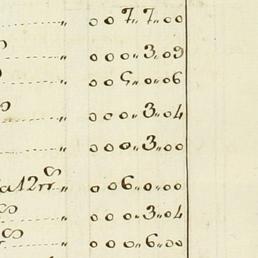 " 0 0 7 " 7 " 00
" 0 0 0 " 3 " 09
" 0 0 5 " 0 " 06
" 0 0 0 " 3 " 04
" 0 0 0 " 3 " 00
a 12 " 0 0 6 " 0 " 00
" 0 0 0 " 3 " 04
" 0 0 0 " 6 " 00